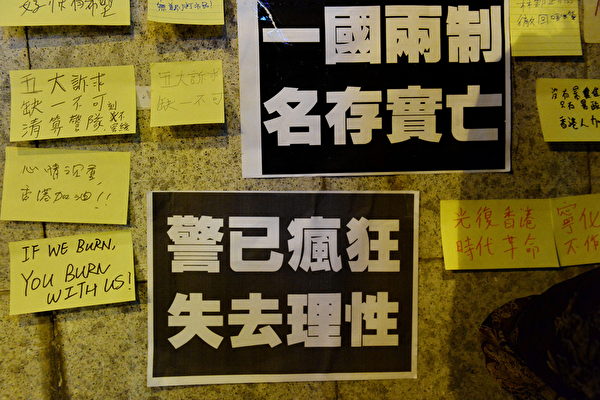 一國兩制
名存實亡
五大訴求
缺一不可
清算警隊
五大訴求
缺一不可
心情沉重
香港加油!!
IF WE BURN,
YOU BURN
WITH US!
警已瘋狂
失去理性
光復香港
時代革命
寧化
不作
香港人加